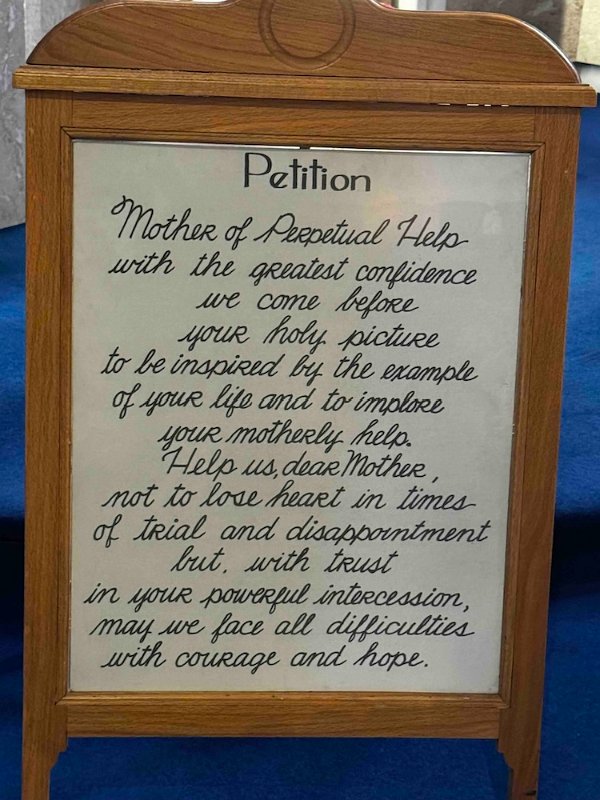 Petition
Mother of Perpetual Help
with the greatest confidence
we come before
your holy picture
to be inspired by the example
of your life and to implore
your motherly help.
Help us, dear Mother,
not to lose heart in times
of trial and disappointment
but, with trust
in your powerful intercession,
may we face all difficulties
with courage and hope.